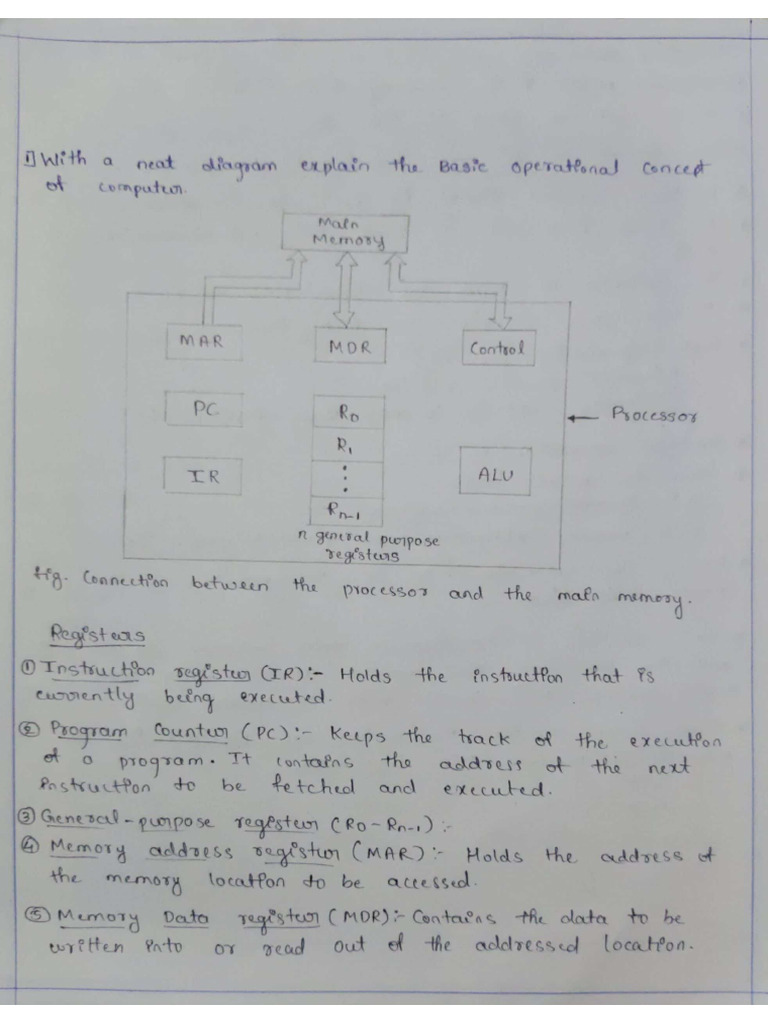 1] With a neat diagram explain the Basic operational concept
of computer.
Main
Memory
MAR
MDR
Control
PC
R0
Processor
R1
IR
ALU
Rn-1
n general purpose
registers
fig. Connection between the processor and the main memory.
Registers
① Instruction register (IR):- Holds the instruction that is
currently being executed.
② Program Counter (PC):- Keeps the track of the execution
of a program. It contains the address of the next
instruction to be fetched and executed.
③ General-purpose register (R0-Rn-1):-
④ Memory address register (MAR):- Holds the address of
the memory location to be accessed.
⑤ Memory Data register (MDR):- Contains the data to be
written into or read out of the addressed location.